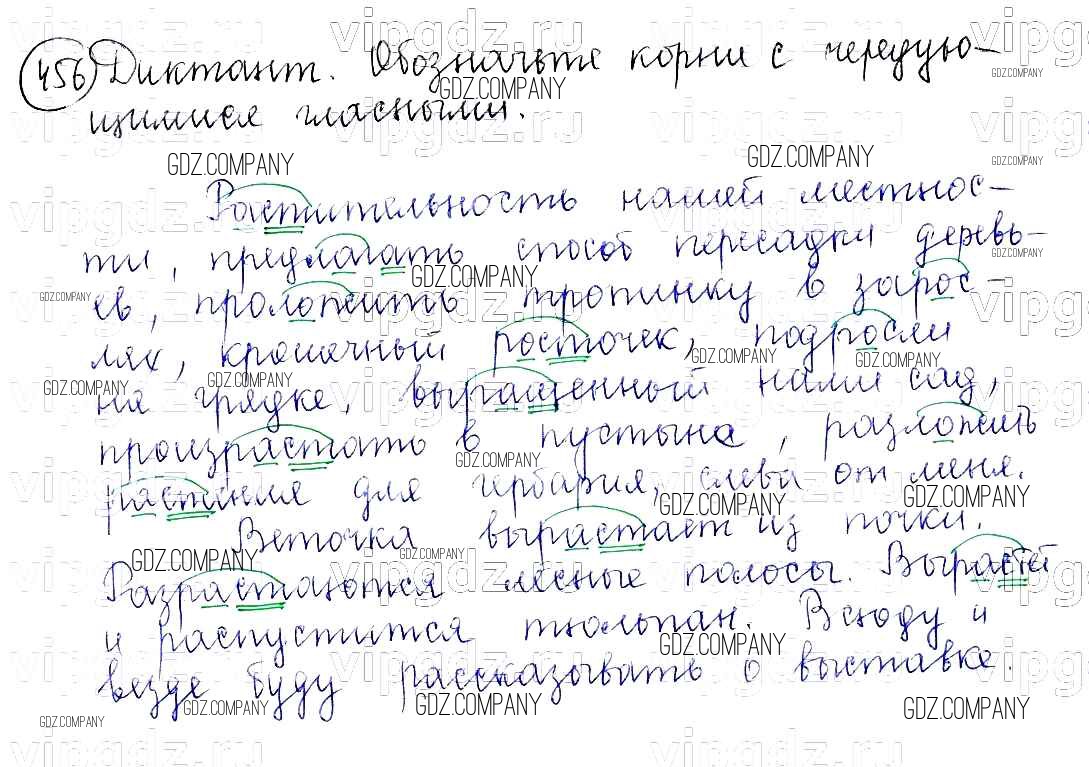 456 Диктант. Обозначьте корни с чередую-
щимися гласными.
Растительность нашей местнос-
ти, предлагать способ пересадки деревь-
ев, проложить тропинку в зарос-
лях, крошечный росточек, подросли
на грядке, выращенный нами сад,
произрастать в пустыне, разложить
растения для гербария, слева от меня.
Веточка вырастает из почки.
Разрастаются лесные полосы. Вырастет
и распустится тюльпан. Всюду и
везде буду рассказывать о выставке.
vipgdz.ru
GDZ.COMPANY